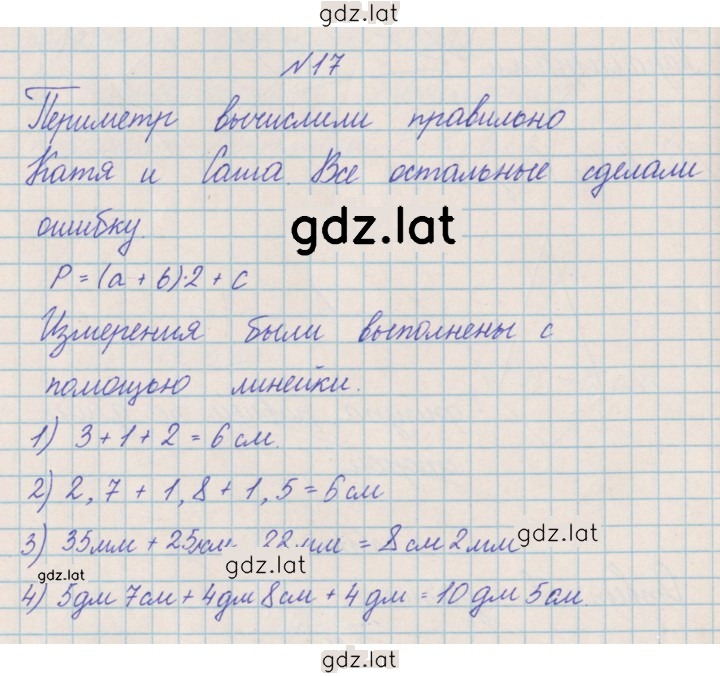 gdz.lat
№17
Периметр вычислили правильно
Катя и Саша. Все остальные сделали
ошибку.
gdz.lat
P = (a + b)·2 + c
Измерения были выполнены с
помощью линейки.
1) 3 + 1 + 2 = 6 см.
2) 2,7 + 1,8 + 1,5 = 6 см
3) 35мм + 25мм 22мм = 8 см 2 мм
gdz.lat
gdz.lat
gdz.lat
4) 5дм 7см + 4дм 8см + 4 дм = 10 дм 5 см.
gdz.lat